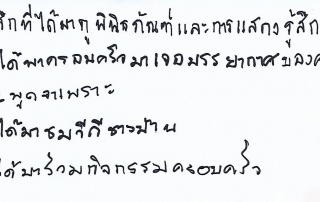 ึกที่ได้มาดูพิพิธภัณฑ์และการแสดง รู้สึก
ได้พาครอบครัวมาเจอบรรยากาศของ
พูดจาเพราะ
ได้มาชมวิถีชาวบ้าน
ได้มาร่วมกิจกรรมครอบครัว